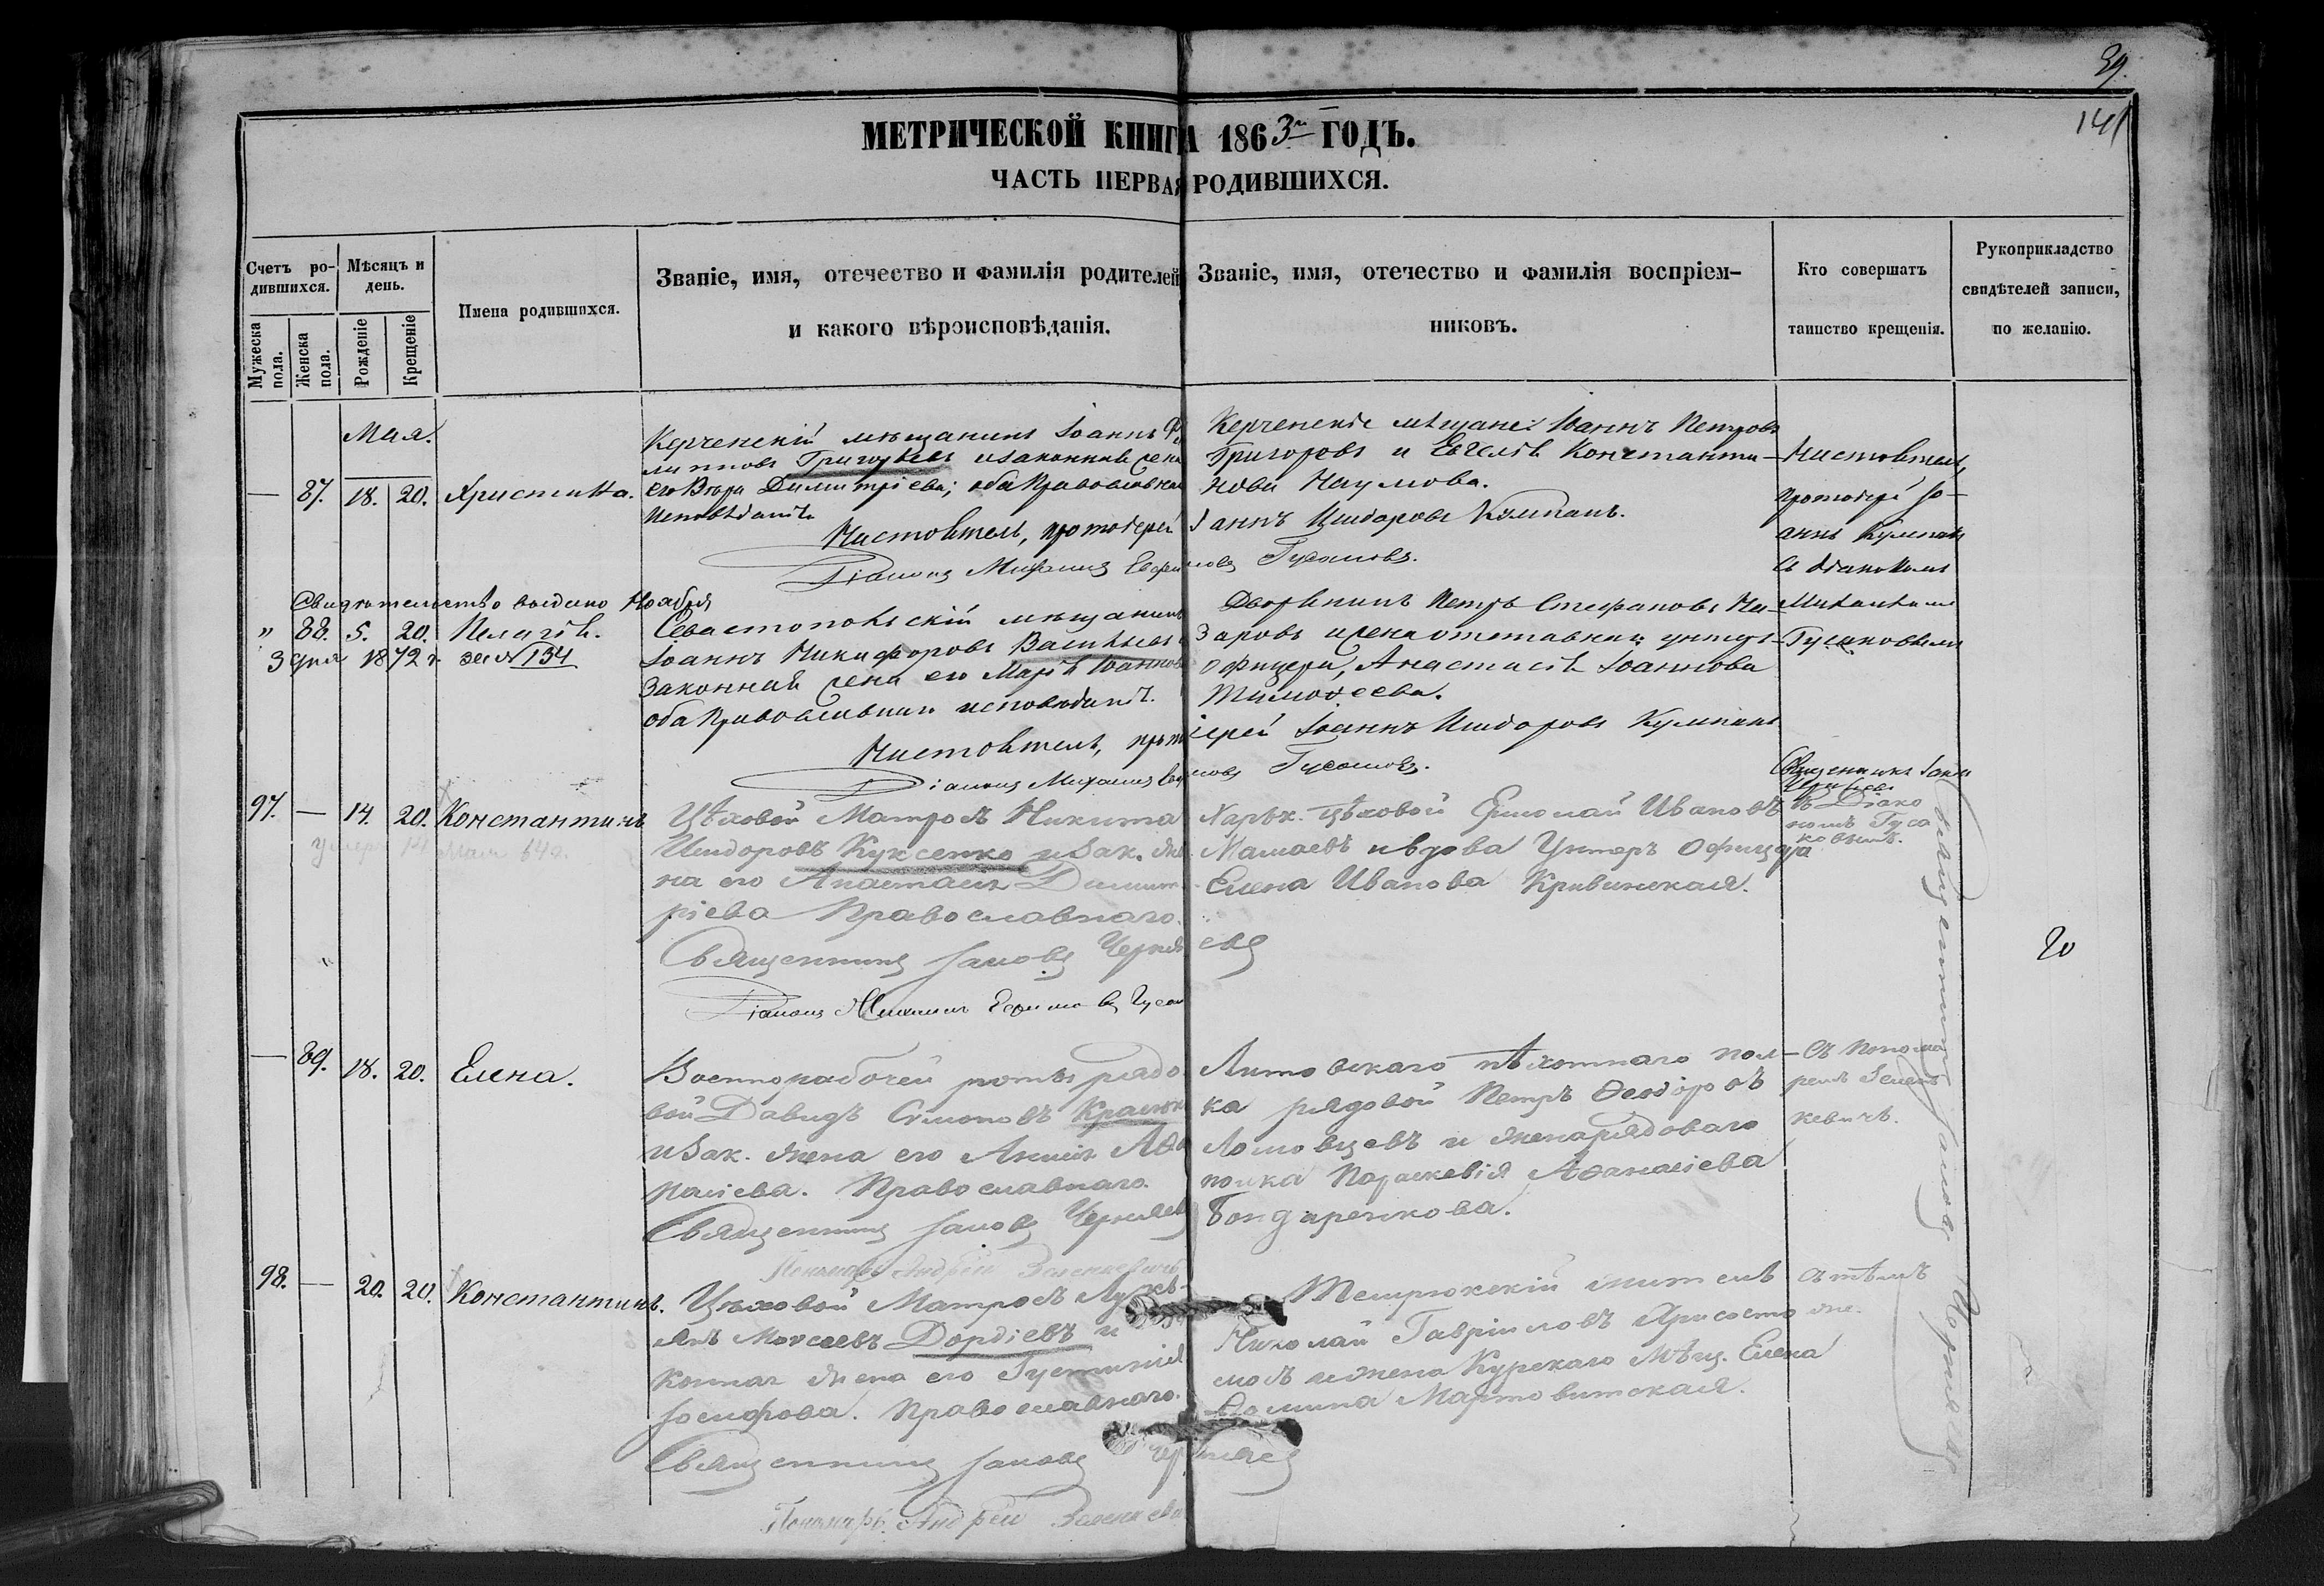 39.
141
МЕТРИЧЕСКОЙ КНИГИ 1863й ГОДЪ.
ЧАСТЬ ПЕРВАЯ РОДИВШИХСЯ.
Счетъ ро-
дившихся.
Мужеска пола.
Женска пола.
Мѣсяцъ и
день.
Рожденіе
Крещеніе
Имена родившихся.
Званіе, имя, отечество и фамилія родителей
и какого вѣроисповѣданія.
Званіе, имя, отечество и фамилія воспріем-
никовъ.
Кто совершатъ
таинство крещенія.
Рукоприкладство
свидѣтелей записи,
по желанію.
Мая.
— 87. 18. 20. Христина.
Керченскій мѣщанинъ Іоаннъ Фи
липповъ Григорьевъ изаконная жена
его Вѣра Димитріева; оба Православнаго
Исповѣданія
Настоятель, протоіерей Іоаннъ Исидоровъ Кумпанъ.
Діаконъ Михаилъ Ефимовъ Гусаковъ.
Керченскіе мѣщане: Іоаннъ Петровъ
Григоровъ и Евгенія Константи-
нова Наумова.
Настоятель,
протоіерей Іо-
аннъ Кумпанъ
съ діакономъ
Михаиломъ
Гусаковымъ
Свидѣтельство выдано Ноября
3 дня 1872 г. за №134
" 88. 5. 20. Пелагія.
Севастопольскій мѣщанинъ
Іоаннъ Никифоровъ Васильевъ и
Законная жена его Марія Іоаннова
оба Православнаго исповѣданія.
Настоятель, протоіерей Іоаннъ Исидоровъ Кумпанъ
Діаконъ Михаилъ Ефимовъ Гусаковъ.
Дворянинъ Петръ Стефановъ На-
заровъ и жена отставнаго унтеръ-
офицера, Анастасія Іоаннова
Тимоѳеева.
97. — 14. 20. Константинъ
умеръ 14 мая 64 г.
Цѣховой Матросъ Никита
Исидоровъ Куксенко и Зак. же
на его Анастасія Димит
ріева Православнаго.
Священникъ Іаковъ Черняевъ
Діаконъ Михаилъ Ефимовъ Гусак
Харьк. цѣховой Ермолай Ивановъ
Мамаевъ и вдова Унтеръ Офицера
Елена Иванова Кривинская.
Священникъ Іаковъ
Черняевъ
съ Діако
номъ Гуса
ковымъ.
20
— 89. 18. 20. Елена.
Военнорабочей роты рядо
вой Давидъ Симоновъ
и Зак. жена его Аѳа
насіева. Православнаго.
Священникъ Іаковъ Черняевъ
Пономарь Андрей Зеленкевичъ
Литовскаго пѣхотнаго пол-
ка рядовой Петръ Ѳеодоровъ
Ломовцевъ и жена рядоваго
полка Параскевія Аѳанасіева
Бондаренкова.
Съ Понома
ремъ Зелен
кевичъ.
98. — 20. 20. Константинъ.
Цѣховой Матросъ Лукь-
янъ Моисеевъ Дордіевъ и
конная жена его Густинія
Іосифова. Православнаго.
Священникъ Іаковъ Черняевъ
Пономарь Андрей Зеленкеви
Темрюкскій житель
Николай Гавріиловъ Хрисосто
мовъ и жена Курскаго Мѣщ. Елена
Ѳомина Мартовитская.
Съ тѣмъ
же.
Священникъ Іаковъ Черняевъ